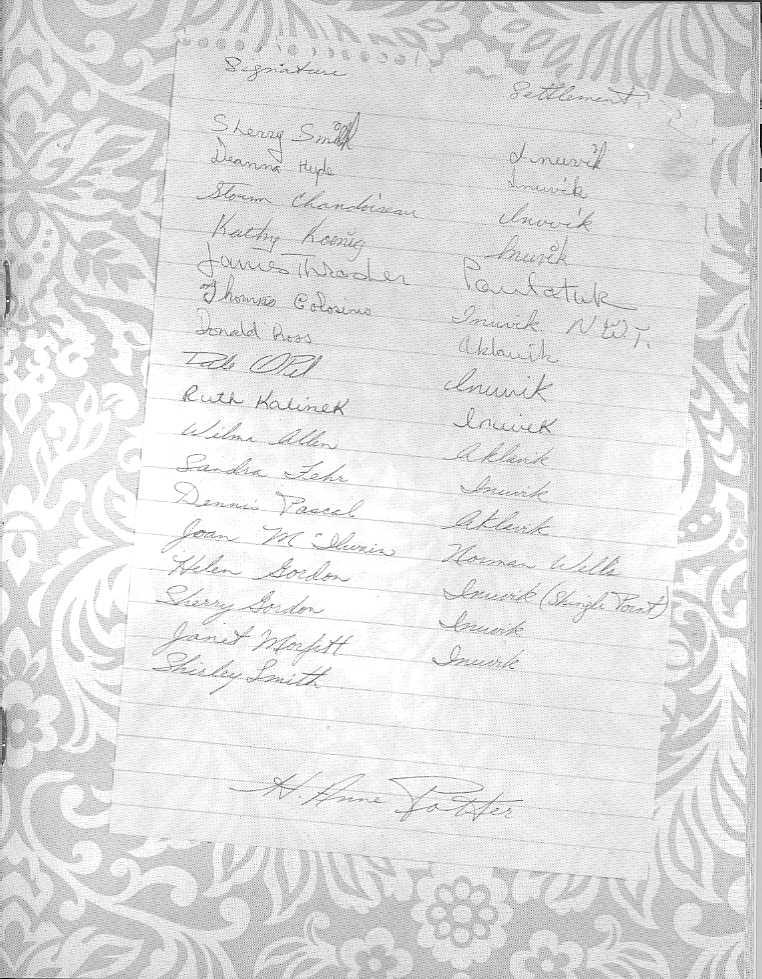 Signature Settlement
Sherry Smith Inuvik
Deanna Hyde Inuvik
Chandoiseau Inuvik
Kathy Koenig Inuvik
James Thrasher Paulatuk
Thomas Colosimo Inuvik N.W.T.
Donald Ross Aklavik
Dale Inuvik
Ruth Kalinek Inuvik
Wilma Allen Aklavik
Sandra Fehr Inuvik
Dennis Pascal Aklavik
Joan Norman Wells
Helen Gordon Inuvik (Shingle Point)
Sherry Gordon Inuvik
Janet Morfitt Inuvik
Shirley Smith
H. Anne Potter